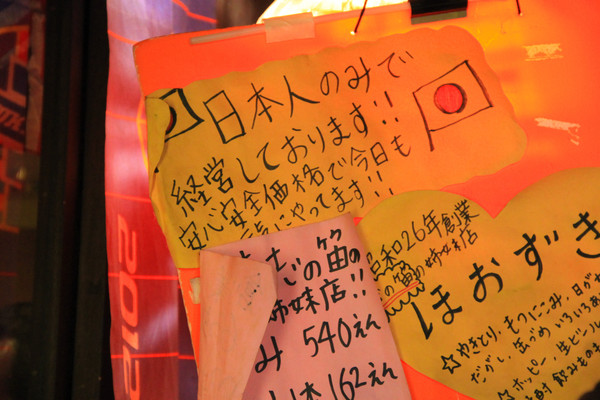 日本人のみで
経営しております!!
安心安全価格で今日も
にやってます!!
昭和26年創業
の笛の姉妹店
ほおずき
☆やきとり、もつにこみ、日が
だがし、缶づめ いろいろあ
ホッピー、生ビール
飲みもの
の笛の
姉妹店!!
み 540えん
162えん
2012